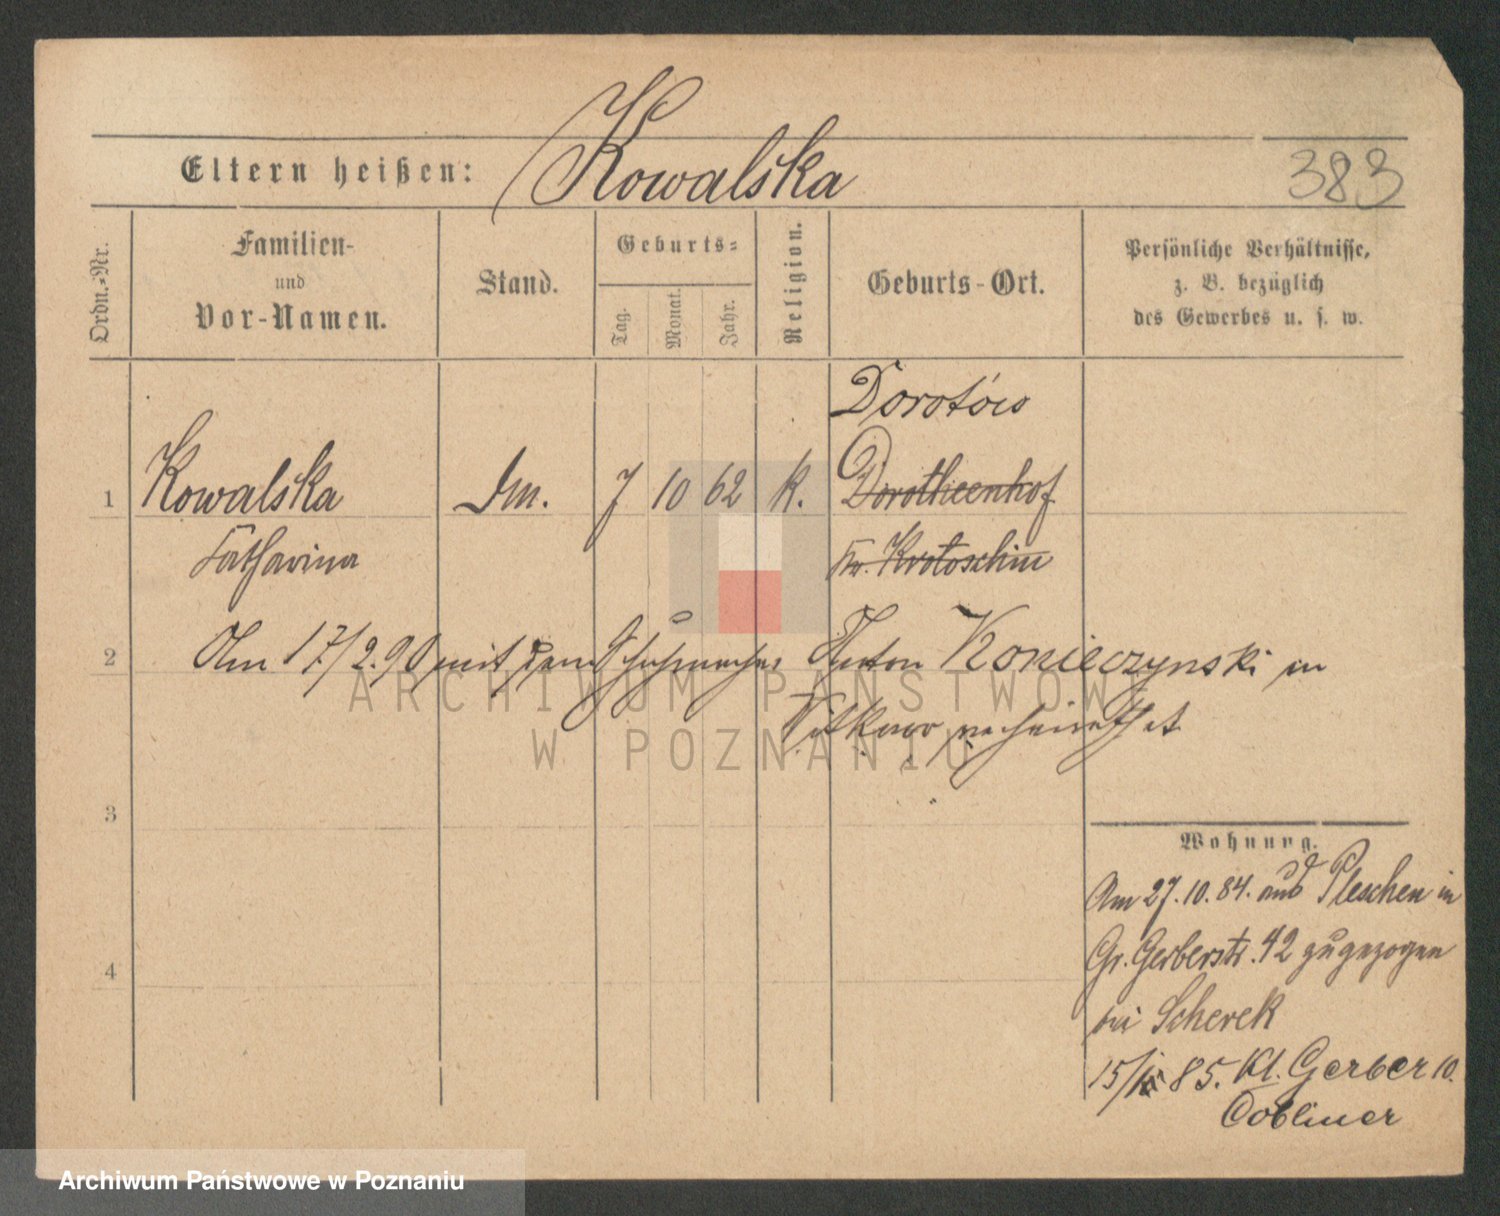 Eltern heißen: Kowalska
383
Ordn.-Nr.
Familien-
und
Vor-Namen.
Stand.
Geburts-
Tag.
Monat.
Jahr.
Religion.
Geburts-Ort.
Persönliche Verhältnisse,
z. B. bezüglich
des Gewerbes u. s. w.
Dorotów
1 Kowalska Dm. 7 10 62 k. Dorotheenhof
Catharina Kr. Krotoschin
2 Am 17/2.90 mit dem Schuhmacher Anton Konieczynski in
Witkowo verheirathet
3
4
Wohnung.
Am 27.10.84. aus Pleschen in
Gr. Gerberstr. 42 zugezogen
bei Scherek
85. Kl. Gerber 10.
Cobliner
ARCHIWUM PAŃSTWOWE
W POZNANIU
Archiwum Państwowe w Poznaniu